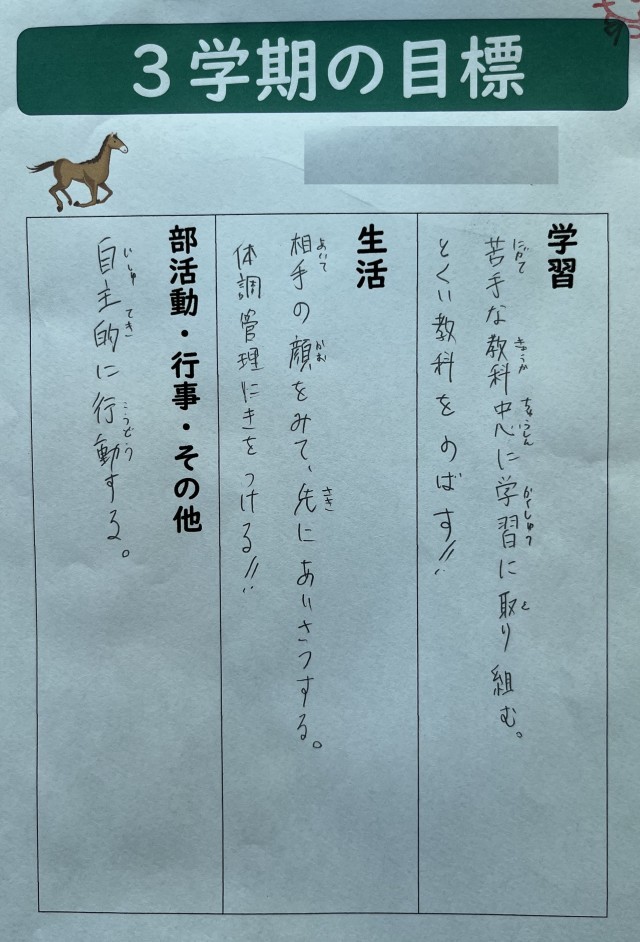 3学期の目標
学習
苦手な教科中心に学習に取り組む。
とくい教科をのばす!!
生活
相手の顔をみて、先にあいさつする。
体調管理にきをつける!!
部活動・行事・その他
自主的に行動する。